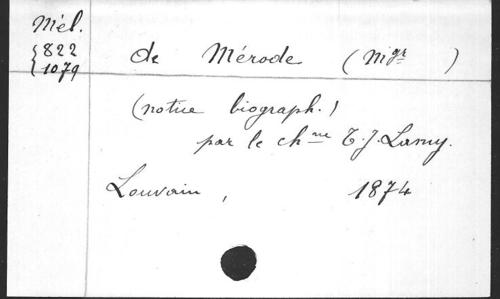 Mél.
822
1079
de Mérode (Mgr )
(notice biograph.)
par le chne T.J. Lamy.
Louvain, 1874